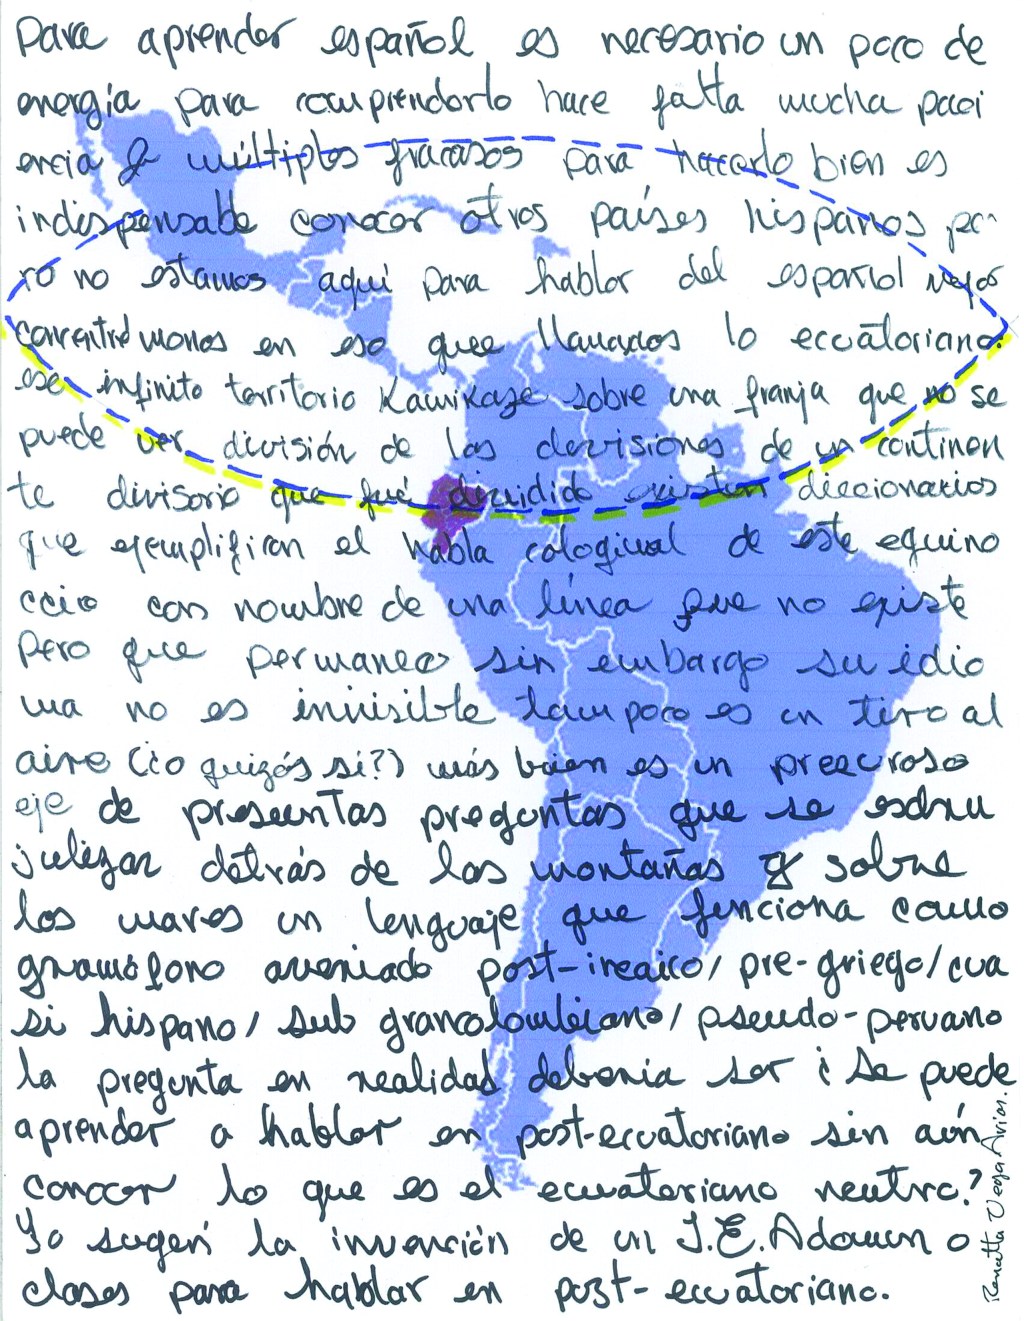 Para aprender español es necesario un poco de
energía para comprenderlo hace falta mucha paci
encia & múltiples fracasos para hacerlo bien es
indispensable conocer otros países hispanos pe
ro no estamos aquí para hablar del español mejor
concentrémonos en eso que llamamos lo ecuatoriano.
ese infinito territorio Kamikaze sobre una franja que no se
puede ver división de las devisiones de un continen
te divisorio que fué dividido existen diccionarios
que ejemplifican el habla cologiual de este equino
ccio con nombre de una línea que no existe
Pero que permanece sin embargo su idio
ma no es invisible tampoco es un tiro al
aire (¿o quizás si?) más bien es un preecroso
eje de preseuntas preguntas que se esdru
julizan detrás de las montañas y sobre
los mares un lenguaje que funciona como
gramófono averiado post-incaico/ pre-griego/cua
si hispano/ sub grancolombiano/ pseudo-peruano
la pregunta en realidad debería ser ¿Se puede
aprender a hablar en post-ecuatoriano sin aún
conocer lo que es el ecuatoriano neutro?
Yo sugerí la invención de un J.E.Adoum o
clases para hablar en post-ecuatoriano.
Renatta Vega Arias.